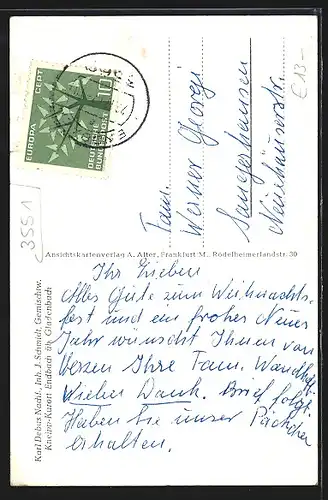 € 13-
EUROPA CEPT
10
DEUTSCHE
BUNDESPOST
Fam.
Werner Georgi
Sangerhausen
3551
Ansichtskartenverlag A. Alter, Frankfurt M., Rödelheimerlandstr. 30
Karl Debus Nachf., Inh. J. Schmidt, Gemischtw.
Kneipp-Kurort Endbach üb. Gladenbach
Ihr Lieben
Alles Gute zum Weihnachts-
fest und ein frohes Neues
Jahr wünscht Ihnen von
Herzen Ihre Fam.
Vielen Dank. Brief folgt.
Haben Sie unser Päckchen
erhalten.